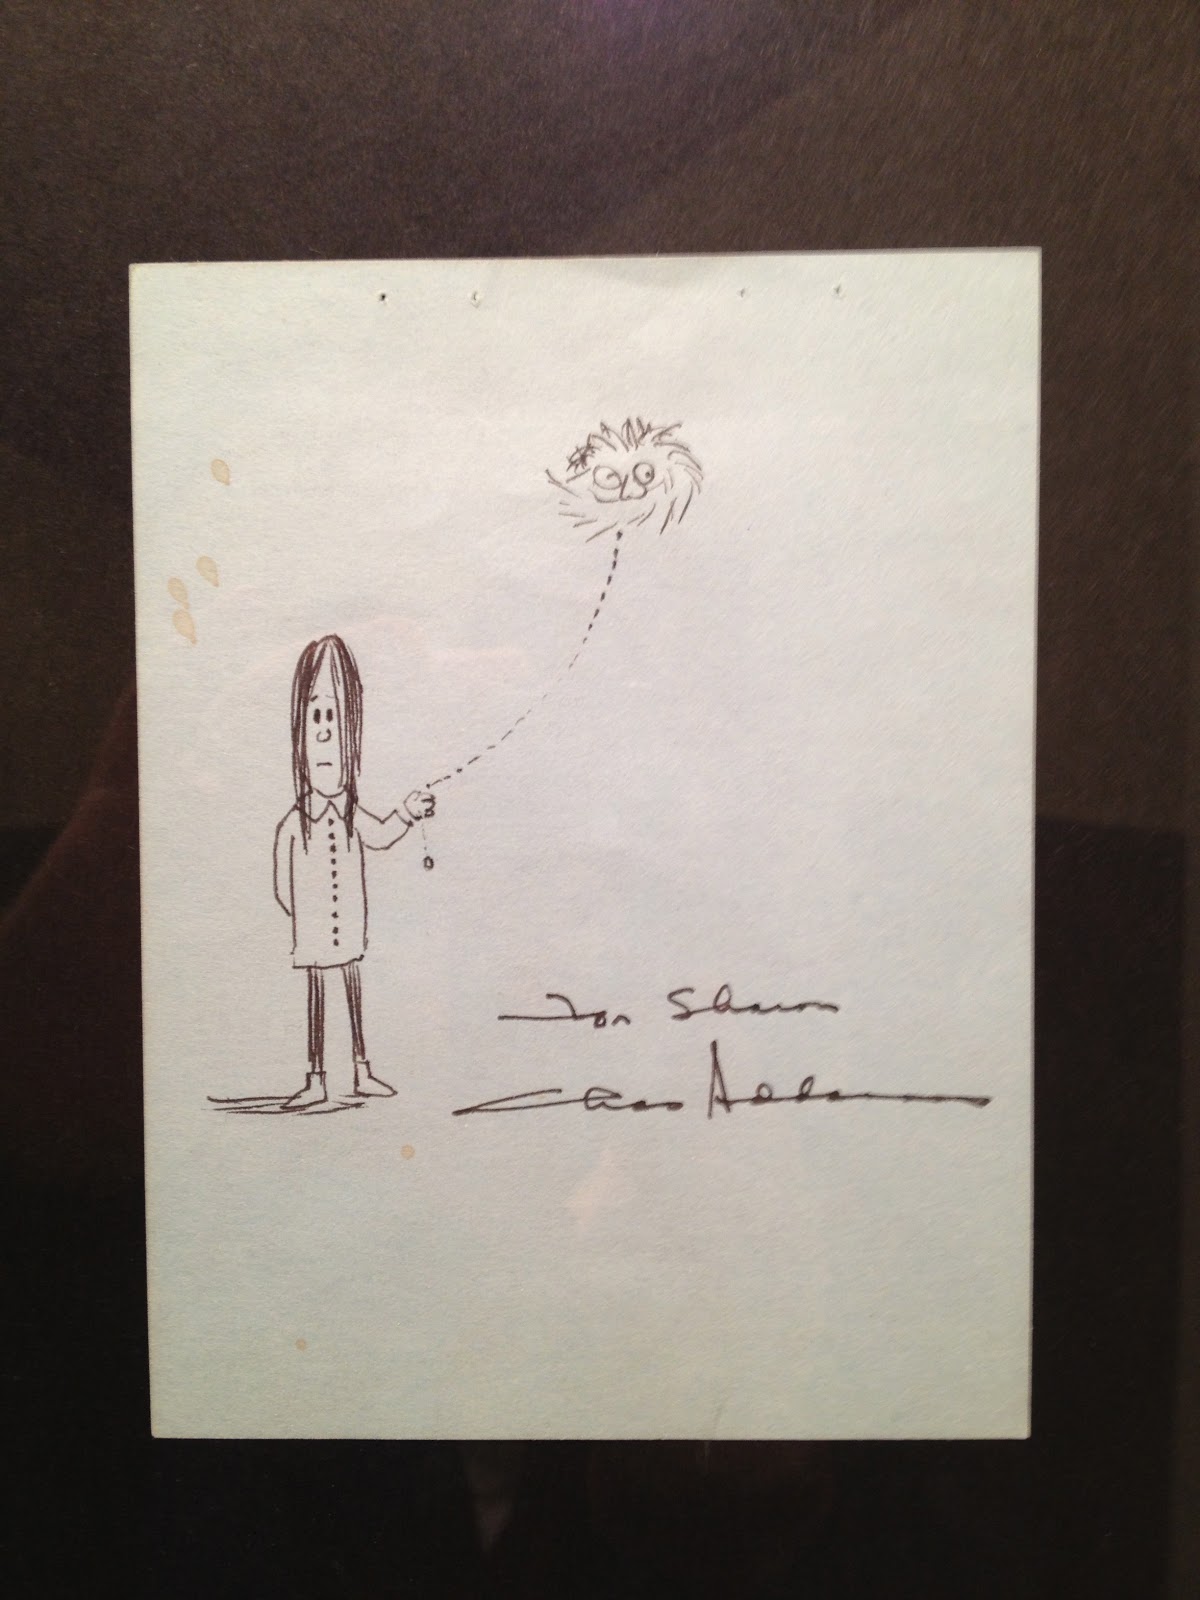 For Sharon
Chas Addams